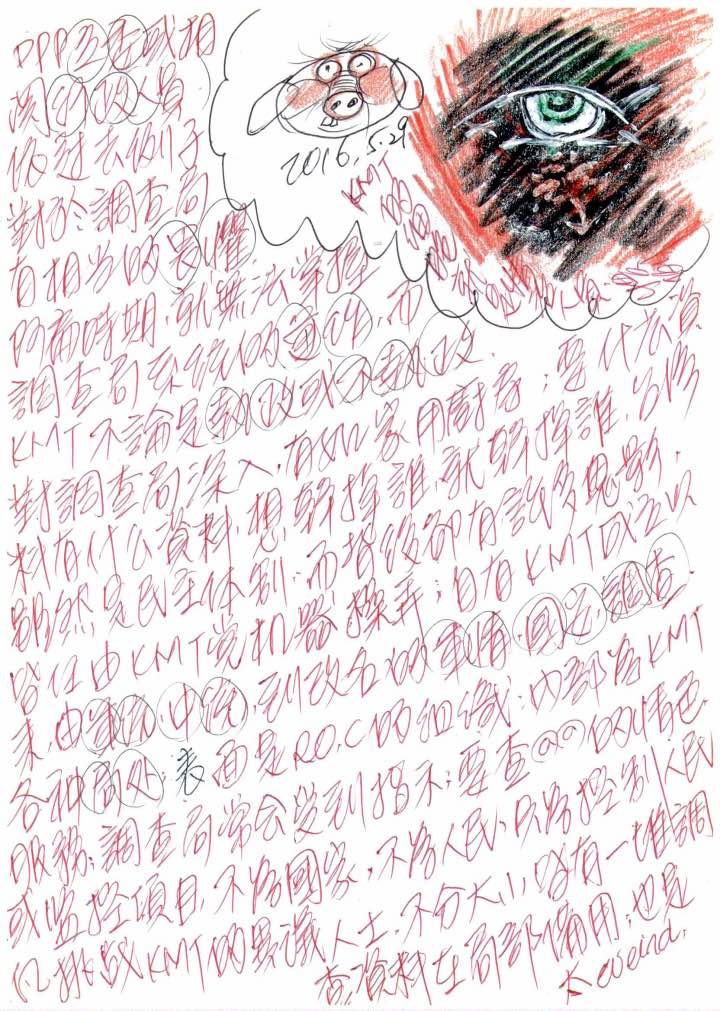 DPP立委或相
關行政人員
依过去例子
對於調查局
有相当的畏懼
2016.5.29
KMT
阿扁時期,就無法掌控
調查局系統的毒性,而
KMT不論是執政或不執政,
對調查局深入,有如家用廚房;要什么資
料有什么資料,想幹掉誰,就幹掉誰,
雖然是民主体制,而背後卻有許多鬼影,
皆任由KMT党机器操弄;自有KMT成立以
來,由軍統,中統,到改名的軍情,國安,調查,
各种局处;表面是R.O.C的組織;內部為KMT
服務,調查局常会受到指示;要查@@的情色
或监控項目,不為國家,不為人民,只為控制人民
凡挑战KMT的異議人士,不分大小,皆有一堆調
查資料在局部備用;也是
太weird.